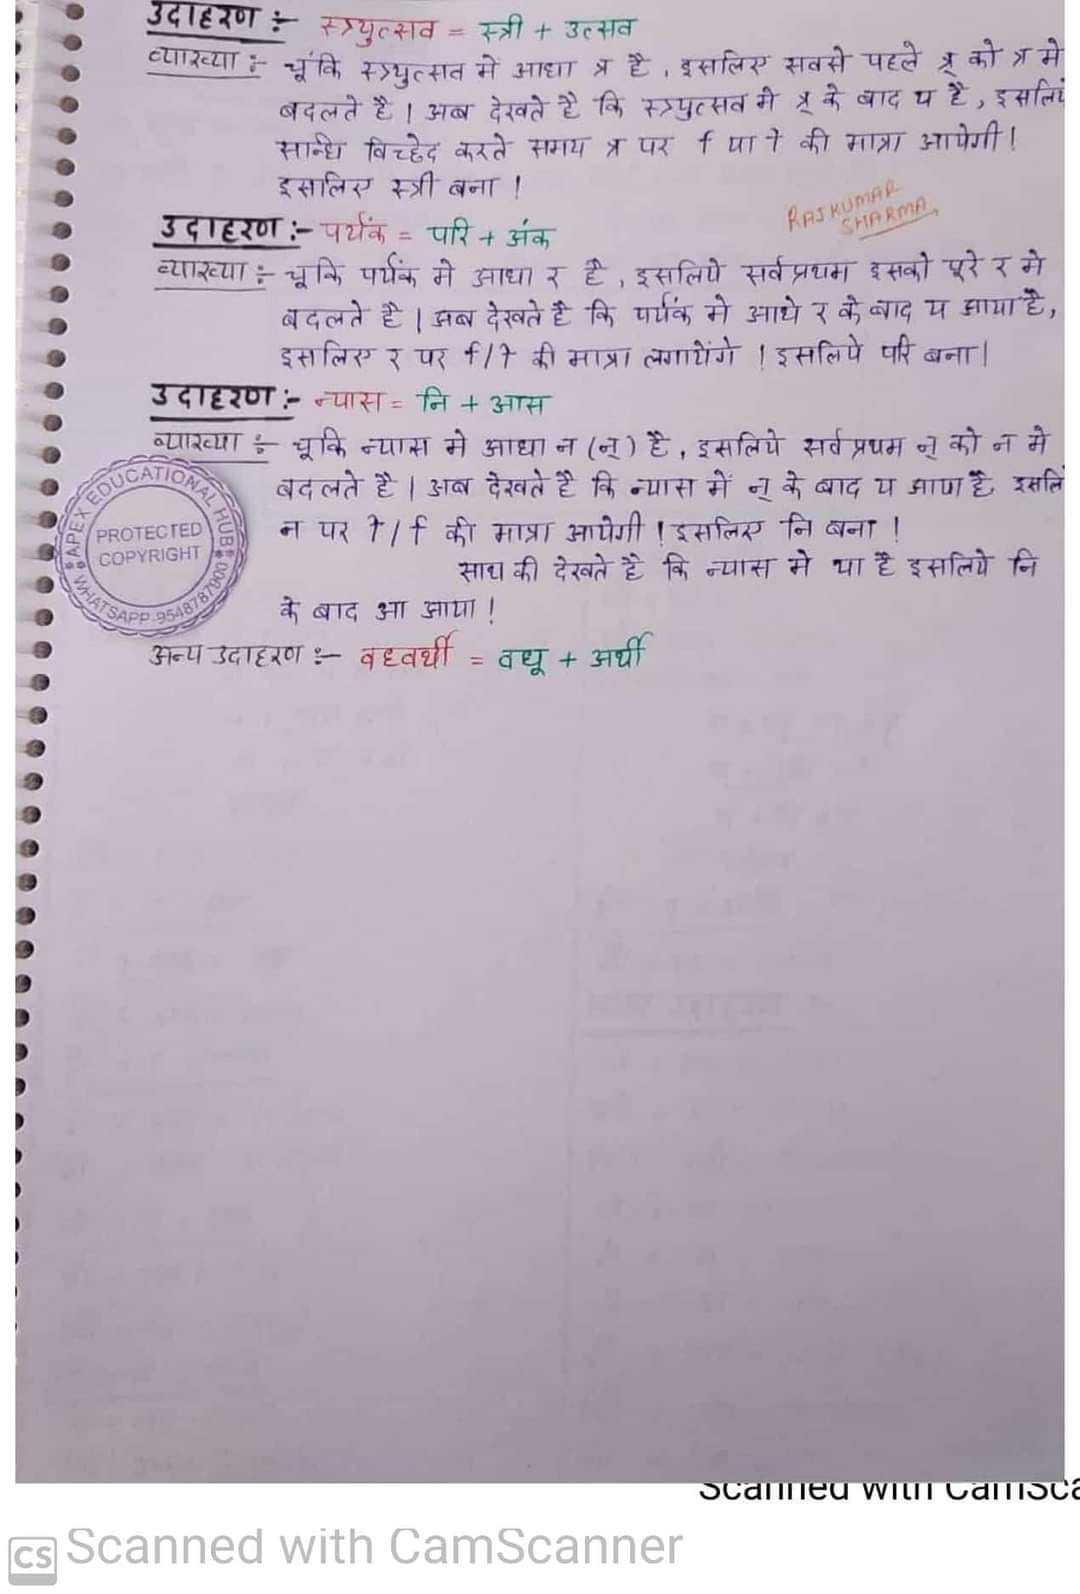 उदाहरण :- स्त्र्युत्सव = स्त्री + उत्सव
व्याख्या :- चूंकि स्त्र्युत्सव मे आधा त्र है, इसलिए सबसे पहले त्र् को त्र मे
बदलते है। अब देखते है कि स्त्र्युत्सव मे त्र् के बाद य है, इसलिये
सन्धि विच्छेद करते समय त्र पर ि या ी की मात्रा आयेगी!
इसलिए स्त्री बना!
RAJKUMAR
SHARMA
उदाहरण :- पर्यंक = परि + अंक
व्याख्या :- चूकि पर्यंक मे आधा र है, इसलिये सर्वप्रथम इसको पूरे र मे
बदलते है। अब देखते है कि पर्यंक मे आधे र के बाद य आया है,
इसलिए र पर ि/ी की मात्रा लगायेंगे ! इसलिये परि बना।
उदाहरण :- न्यास = नि + आस
व्याख्या :- चूकि न्यास मे आधा न (न्) है, इसलिये सर्वप्रथम न् को न मे
बदलते है। अब देखते है कि न्यास में न् के बाद य आया है इसलि
न पर ी/ि की मात्रा आयेगी! इसलिए नि बना!
साथ की देखते है कि न्यास मे या है इसलिये नि
के बाद आ आया!
अन्य उदाहरण :- वध्वर्थी = वधू + अर्थी
APEX EDUCATIONAL HUB
PROTECTED
COPYRIGHT
WHATSAPP-9548787000
Scanned with CamSca
CS Scanned with CamScanner